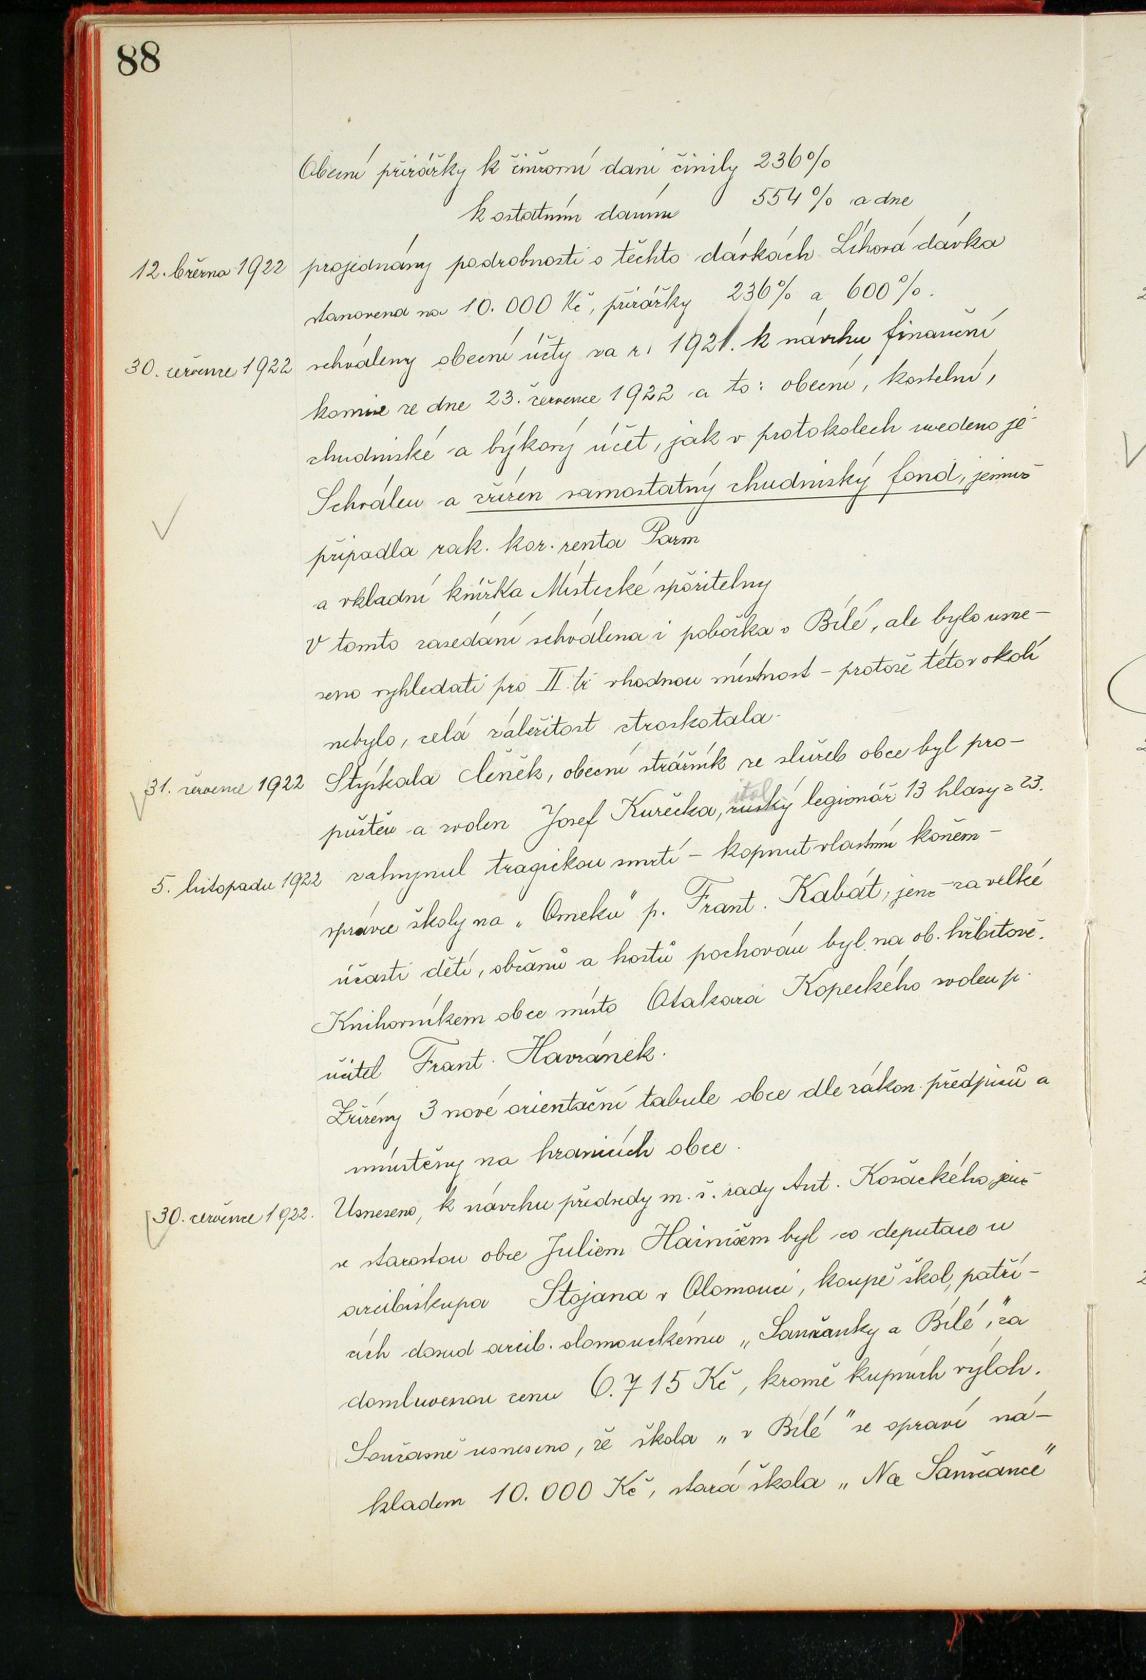 88
Obecní přirážky k činžovní dani činily 236%
k ostatním daním 554% a dne
12. března 1922 projednány podrobnosti o těchto dávkách Lihová dávka
stanovena na 10.000 Kč, přirážky 236% a 600%.
30. července 1922 schváleny obecní účty za r. 1921. k návrhu finanční
komise ze dne 23. července 1922 a to: obecní, kostelní,
chudinské a býkový účet, jak v protokolech uvedeno je
Schválen a zřízen samostatný chudinský fond, jemuž
připadla rak. kor. renta
a vkladní knížka Místecké spořitelny
V tomto zasedání schválena i pobočka v Bílé, ale bylo usne-
seno vyhledati pro II. tř vhodnou místnost - protože této v okolí
nebylo, celá záležitost ztroskotala.
31. července 1922 Stýskala Čeněk, obecní strážník ze služeb obce byl pro-
puštěn a zvolen Josef Kurečka, ruský ital legionář 13 hlasy z 23.
5. listopadu 1922 zahynul tragickou smrtí - kopnut vlastním koněm -
správce školy na „Omeku" p. Frant. Kabát, jenž za velké
účasti dětí, občanů a hostů pochován byl na ob. hřbitově.
Knihovníkem obce místo Otakara Kopeckého zvolen p.
učitel Frant. Havránek.
Zřízeny 3 nové orientační tabule obce dle zákon. předpisů a
umístěny na hranicích obce.
30. července 1922. Usneseno, k návrhu předsedy m. š. rady Ant. Kosáckého, jenž
se starostou obce Juliem Hainišem byl co deputace u
arcibiskupa Stojana v Olomouci, koupě škol, patří-
cích dosud arcib. olomouckému „Samčanky a Bílé", za
domluvenou cenu 6.715 Kč, kromě kupních výloh.
Současně usneseno, že škola „v Bílé" se opraví ná-
kladem 10.000 Kč, stará škola „Na Samčance"